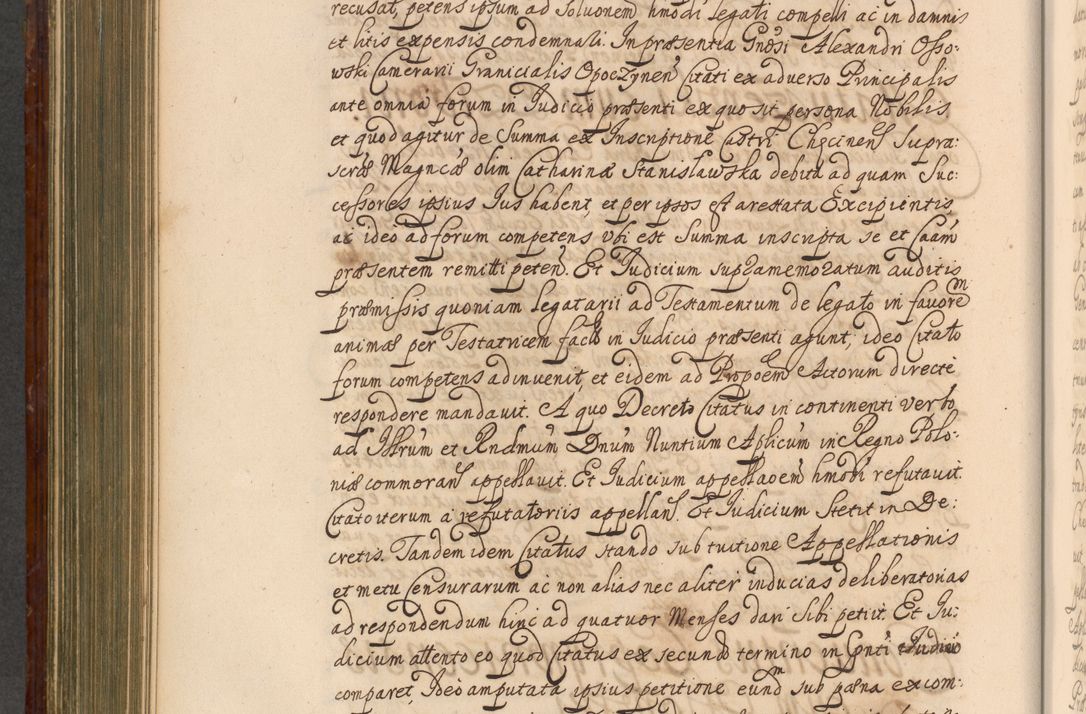 recusat, petens ipsum ad Soluonem hmodi legati compelli ac in damnis
et litis expensis condemnali. In præsentia Gnosi Alexandri Osso-
wski Camerarii Granicialis Opoczynen Citati ex adverso Principalis
ante omnia forum in Judicio præsenti ex quo sit persona Nobilis
et quod agitur de Summa ex Inscriptione Castri Chęcinens Supra:
scræ Magnicæ olim Catharinæ Stanisławska debita ad quam Suc:
cessores ipsius Jus habent, et per ipsos est arestata Excipientis
ac ideo ad forum competens vbi est Summa inscripta se et Caam
præsentem remitti peten. Et Judicium supramemoratum auditis
præmissis quoniam legatarii ad Testamentum de legato in favorem
animæ per Testatricem facto in Judicio præsenti agunt, ideo Citato
forum competens adinvenit, et eidem ad Propoem Actorum directè
respondere mandavit. A quo Decreto Citatus in continenti verbo
ad Illrum et Rndmum Dnum Nuntium Aplicum in Regno Polo-
niæ commorans appellavit. Et Judicium appellaoem hmodi refutavit.
Citato iterum a refutatoriis appellans. Et Judicium Stetit in De:
cretis. Tandem idem Citatus stando sub tuitione Appellationis
et metu Censurarum ac non alias nec aliter inducias deliberatorias
ad respondendum hinc ad quatuor Menses dari Sibi petiit. Et Ju:
dicium attento eo quod Citatus ex secundo termino in Gnti Judicio
comparet, Ideo amputata ipsius petitione eundm sub pæna excom: